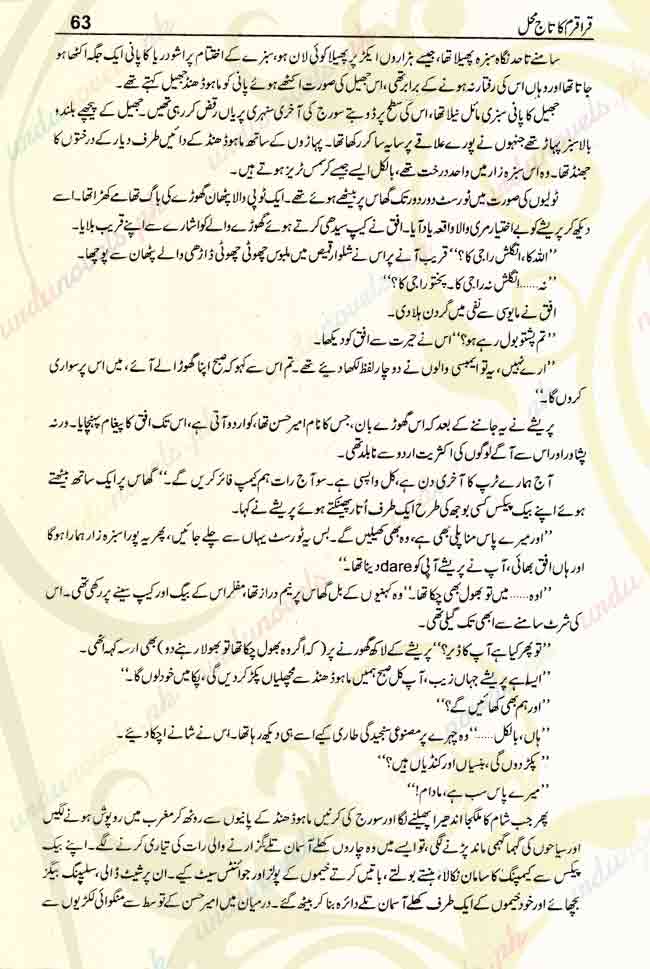 قراقرم کا تاج محل
63
سامنے تاحد نگاہ سبزہ پھیلا تھا، جیسے ہزاروں ایکڑ پر پھیلا کوئی لان ہو، سبزے کے اختتام پر اشو دریا کا پانی ایک جگہ اکٹھا ہو
جاتا تھا اور وہاں اس کی رفتار نہ ہونے کے برابر تھی، اس جھیل کی صورت اکٹھے ہوئے پانی کو ماہوڈھنڈ جھیل کہتے تھے۔
جھیل کا پانی سبزی مائل نیلا تھا، اس کی سطح پر ڈوبتے سورج کی آخری سنہری پریاں رقص کر رہی تھیں۔ جھیل کے پیچھے بلند و
بالا سبز پہاڑ تھے جنہوں نے پورے علاقے پر سایہ سا کر رکھا تھا۔ پہاڑوں کے ساتھ ماہوڈھنڈ کے دائیں طرف دیار کے درختوں کا
جھنڈ تھا۔ وہ اس سبزہ زار میں واحد درخت تھے، بالکل ایسے جیسے کرسمس ٹریز ہوتے ہیں۔
ٹولیوں کی صورت میں ٹورسٹ دور دور تک گھاس پر بیٹھے ہوئے تھے۔ ایک ٹوپی والا پٹھان گھوڑے کی باگ تھامے کھڑا تھا۔ اسے
دیکھ کر پریشے کو بے اختیار مری والا واقعہ یاد آیا۔ افق نے کیپ سیدھی کرتے ہوئے گھوڑے والے کو اشارے سے اپنے قریب بلایا۔
’’اللہ کا، انگلش راجی کا؟‘‘ قریب آنے پر اس نے شلوار قمیص میں ملبوس چھوٹی چھوٹی داڑھی والے پٹھان سے پوچھا۔
’’نہ...... انگلش نہ راجی کا۔ پختو راجی کا؟‘‘
افق نے مایوسی سے نفی میں گردن ہلا دی۔
’’تم پشتو بول رہے ہو؟‘‘ اس نے حیرت سے افق کو دیکھا۔
’’ارے نہیں، یہ تو ایمبسی والوں نے دو چار لفظ لکھا دیئے تھے۔ تم اس سے کہو کہ صبح اپنا گھوڑا لے آئے، میں اس پر سواری
کروں گا۔‘‘
پریشے نے یہ جاننے کے بعد کہ اس گھوڑے بان، جس کا نام امیر حسن تھا، کو اردو آتی ہے، اس تک افق کا پیغام پہنچایا۔ ورنہ
پشاور اور اس سے آگے لوگوں کی اکثریت اردو سے نابلد تھی۔
آج ہمارے ٹرپ کا آخری دن ہے، کل واپسی ہے۔ سو آج رات ہم کیمپ فائر کریں گے۔‘‘ گھاس پر ایک ساتھ بیٹھتے
ہوئے اپنے بیک پیکس کسی بوجھ کی طرح ایک طرف اُتار پھینکتے ہوئے پریشے نے کہا۔
’’اور میرے پاس مناپلی بھی ہے، وہ بھی کھیلیں گے۔ بس یہ ٹورسٹ یہاں سے چلے جائیں، پھر یہ پورا سبزہ زار ہمارا ہوگا
اور ہاں افق بھائی، آپ نے پریشے آپی کو dare دینا تھا۔‘‘
’’اوہ...... میں تو بھول بھی چکا تھا۔‘‘ وہ کہنیوں کے بل گھاس پر نیم دراز تھا، مفلر اس کے بیگ اور کیپ سینے پر رکھی تھی۔ اس
کی شرٹ سامنے سے ابھی تک گیلی تھی۔
’’تو پھر کیا ہے آپ کا ڈیر؟‘‘ پریشے کے لاکھ گھورنے پر (کہ اگر وہ بھول چکا تھا تو بھولا رہنے دو) بھی ارسہ کہہ اٹھی۔
’’ایسا ہے پریشے جہاں زیب، آپ کل صبح ہمیں ماہوڈھنڈ سے مچھلیاں پکڑ کر دیں گی، پکا میں خود لوں گا۔‘‘
’’اور ہم بھی کھائیں گے؟‘‘
’’ہاں، بالکل......‘‘ وہ چہرے پر مصنوعی سنجیدگی طاری کیے اسے ہی دیکھ رہا تھا۔ اس نے شانے اچکا دیئے۔
’’پکڑ دوں گی، بنسیاں اور کنڈیاں ہیں؟‘‘
’’میرے پاس سب ہے، مادام!‘‘
پھر جب شام کا ملگجا اندھیرا پھیلنے لگا اور سورج کی کرنیں ماہوڈھنڈ کے پانیوں سے روٹھ کر مغرب میں روپوش ہونے لگیں
اور سیاحوں کی گہما گہمی ماند پڑنے لگی، تو ایسے میں وہ چاروں کھلے آسمان تلے گزارنے والی رات کی تیاری کرنے لگے۔ اپنے بیک
پیکس سے کیمپنگ کا سامان نکالا، ہنستے بولتے، باتیں کرتے خیموں کے پولز اور جوائنٹس سیٹ کیے۔ ان پر شیٹ ڈالی، سلیپنگ بیگز
بچھائے اور خود خیموں کے ایک طرف کھلے آسمان تلے دائرہ بنا کر بیٹھ گئے۔ درمیان میں امیر حسن کے توسط سے منگوائی لکڑیوں سے